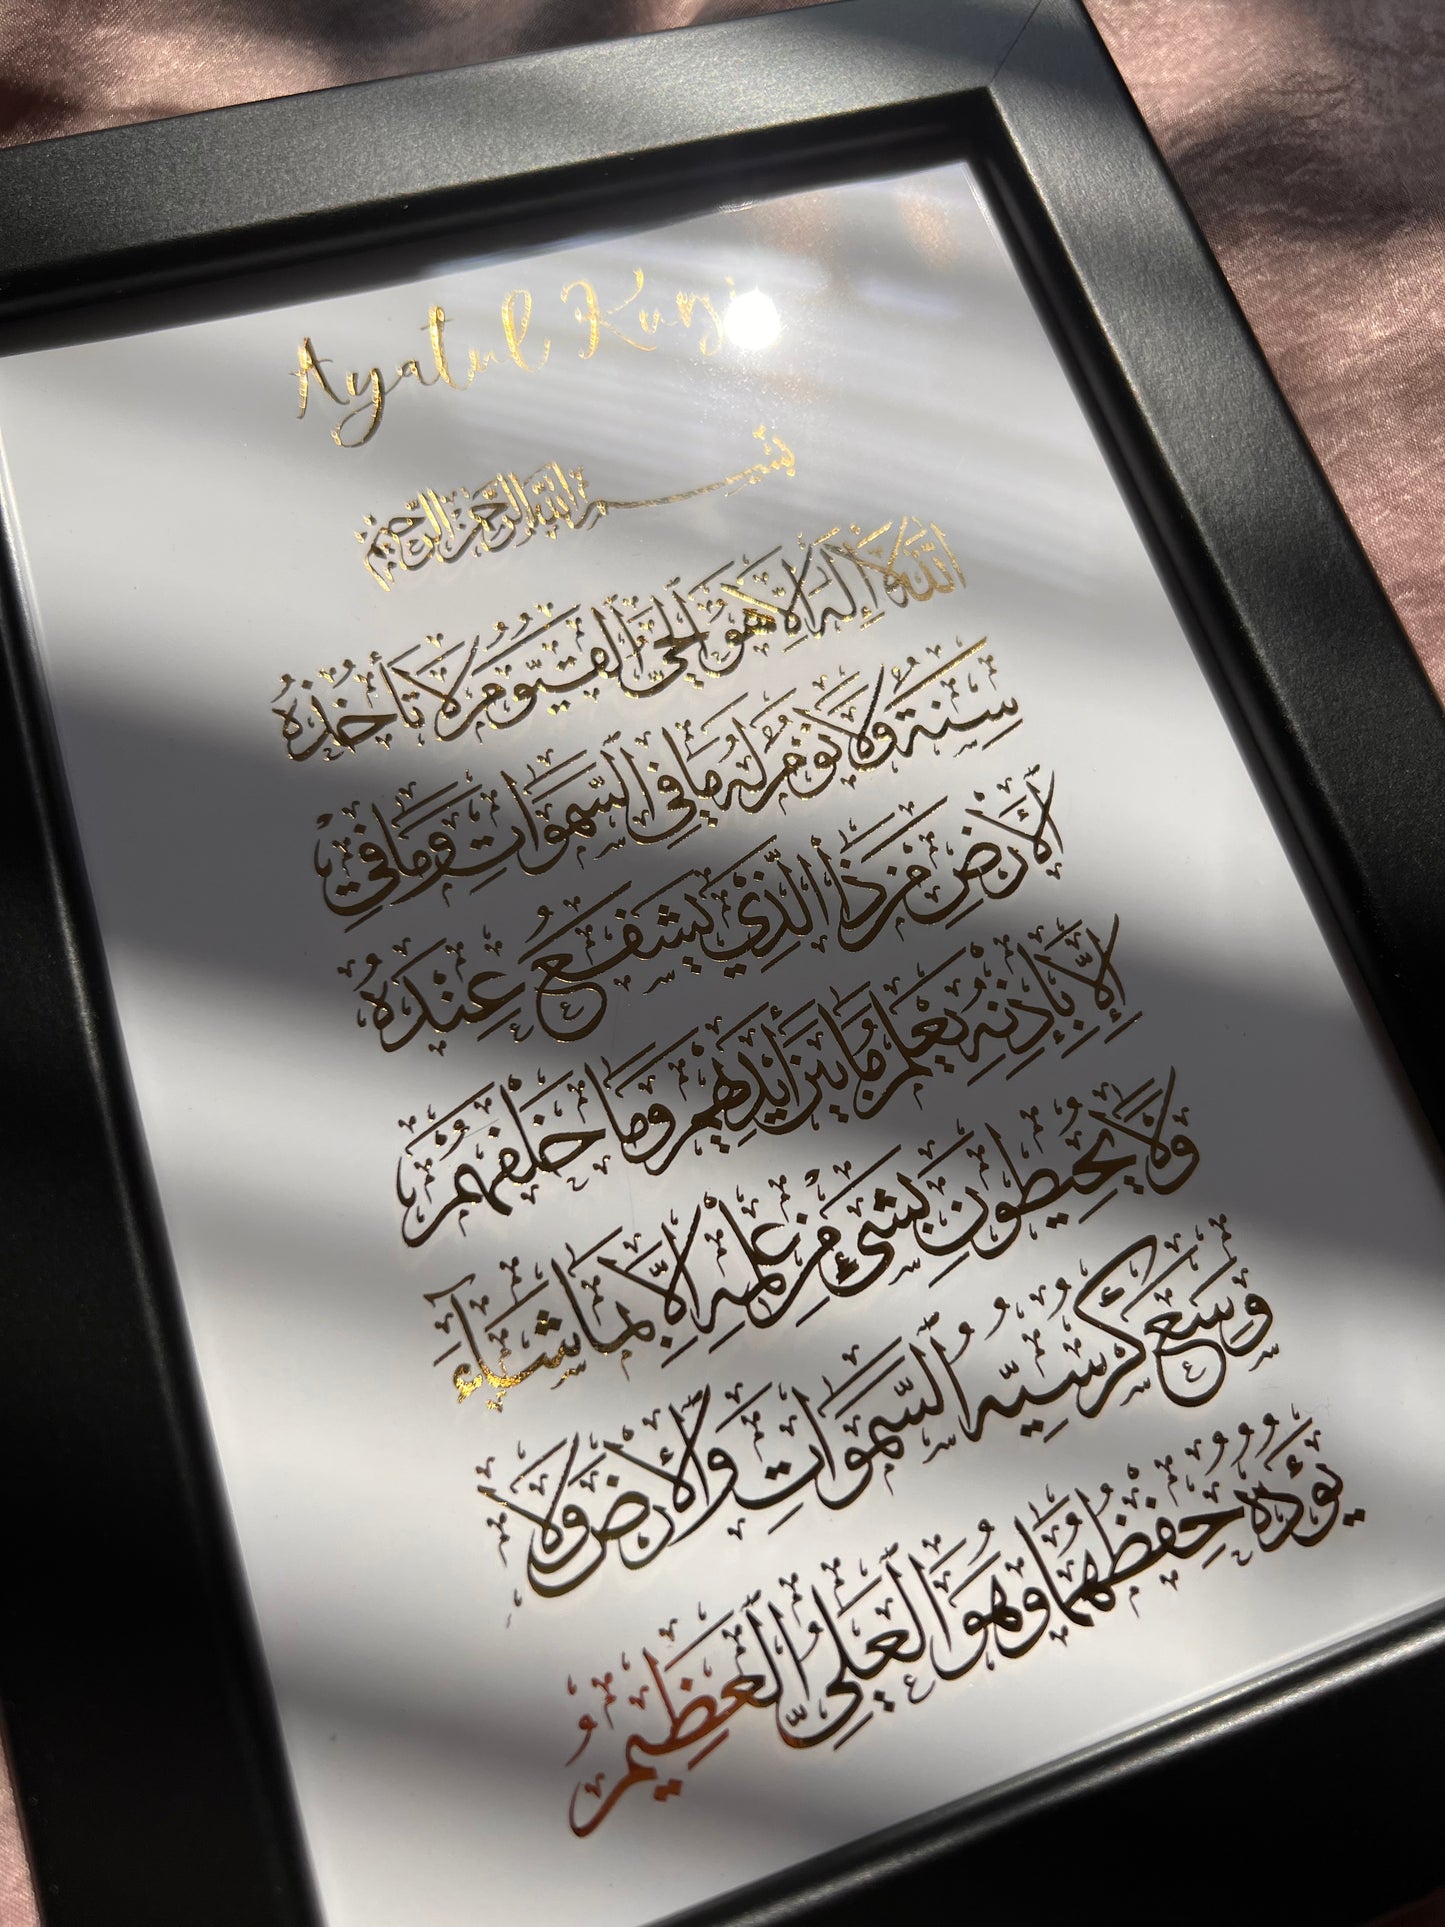 Ayatul Kursi
بسم الله الرحمن الرحيم
اللَّهُ لَا إِلَهَ إِلَّا هُوَ الْحَيُّ الْقَيُّومُ لَا تَأْخُذُهُ
سِنَةٌ وَلَا نَوْمٌ لَهُ مَا فِي السَّمَوَاتِ وَمَا فِي
الْأَرْضِ مَنْ ذَا الَّذِي يَشْفَعُ عِنْدَهُ
إِلَّا بِإِذْنِهِ يَعْلَمُ مَا بَيْنَ أَيْدِيهِمْ وَمَا خَلْفَهُمْ
وَلَا يُحِيطُونَ بِشَيْءٍ مِنْ عِلْمِهِ إِلَّا بِمَا شَاءَ
وَسِعَ كُرْسِيُّهُ السَّمَوَاتِ وَالْأَرْضَ وَلَا
يَؤُدُهُ حِفْظُهُمَا وَهُوَ الْعَلِيُّ الْعَظِيمُ